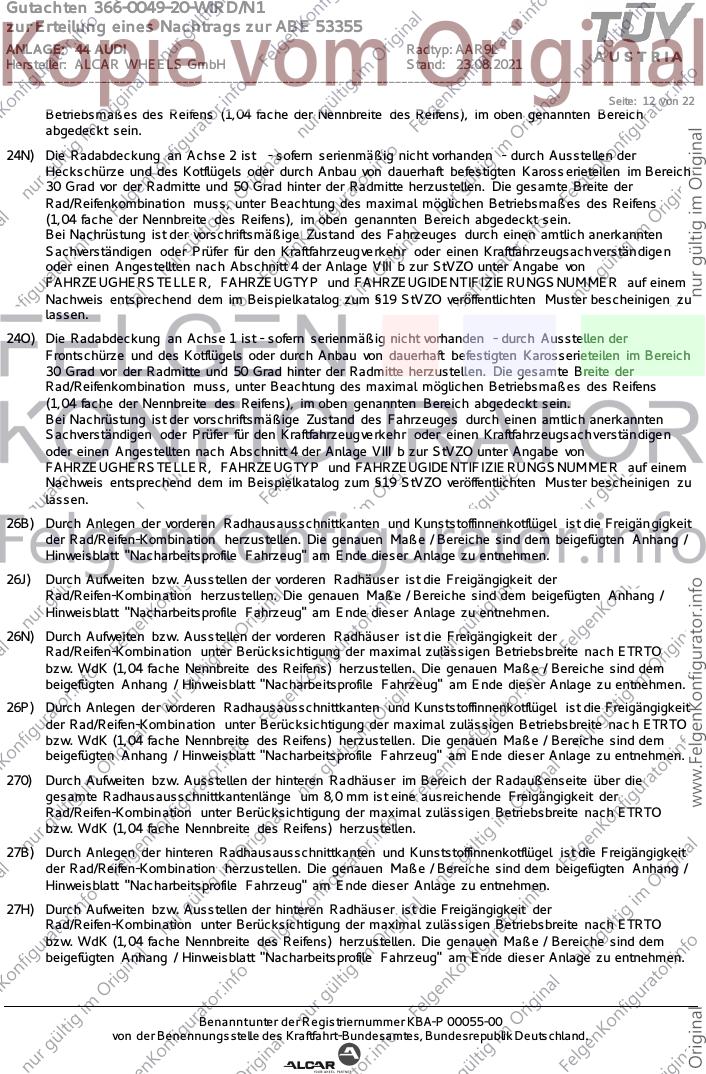 Gutachten 366-0049-20-WIRD/N1
zur Erteilung eines Nachtrags zur ABE 53355
ANLAGE: 44 AUDI
Radtyp: AAR9L
Hersteller: ALCAR WHEELS GmbH
Stand: 23.08.2021
TÜV
AUSTRIA
Kopie vom Original
Seite: 12 von 22
Betriebsmaßes des Reifens (1,04 fache der Nennbreite des Reifens), im oben genannten Bereich
abgedeckt sein.
24N) Die Radabdeckung an Achse 2 ist - sofern serienmäßig nicht vorhanden - durch Ausstellen der
Heckschürze und des Kotflügels oder durch Anbau von dauerhaft befestigten Karosserieteilen im Bereich
30 Grad vor der Radmitte und 50 Grad hinter der Radmitte herzustellen. Die gesamte Breite der
Rad/Reifenkombination muss, unter Beachtung des maximal möglichen Betriebsmaßes des Reifens
(1,04 fache der Nennbreite des Reifens), im oben genannten Bereich abgedeckt sein.
Bei Nachrüstung ist der vorschriftsmäßige Zustand des Fahrzeuges durch einen amtlich anerkannten
Sachverständigen oder Prüfer für den Kraftfahrzeugverkehr oder einen Kraftfahrzeugsachverständigen
oder einen Angestellten nach Abschnitt 4 der Anlage VIII b zur StVZO unter Angabe von
FAHRZEUGHERSTELLER, FAHRZEUGTYP und FAHRZEUGIDENTIFIZIERUNGSNUMMER auf einem
Nachweis entsprechend dem im Beispielkatalog zum §19 StVZO veröffentlichten Muster bescheinigen zu
lassen.
24O) Die Radabdeckung an Achse 1 ist - sofern serienmäßig nicht vorhanden - durch Ausstellen der
Frontschürze und des Kotflügels oder durch Anbau von dauerhaft befestigten Karosserieteilen im Bereich
30 Grad vor der Radmitte und 50 Grad hinter der Radmitte herzustellen. Die gesamte Breite der
Rad/Reifenkombination muss, unter Beachtung des maximal möglichen Betriebsmaßes des Reifens
(1,04 fache der Nennbreite des Reifens), im oben genannten Bereich abgedeckt sein.
Bei Nachrüstung ist der vorschriftsmäßige Zustand des Fahrzeuges durch einen amtlich anerkannten
Sachverständigen oder Prüfer für den Kraftfahrzeugverkehr oder einen Kraftfahrzeugsachverständigen
oder einen Angestellten nach Abschnitt 4 der Anlage VIII b zur StVZO unter Angabe von
FAHRZEUGHERSTELLER, FAHRZEUGTYP und FAHRZEUGIDENTIFIZIERUNGSNUMMER auf einem
Nachweis entsprechend dem im Beispielkatalog zum §19 StVZO veröffentlichten Muster bescheinigen zu
lassen.
FELGEN
KONFIGURATOR
FelgenKonfigurator.info
26B) Durch Anlegen der vorderen Radhausausschnittkanten und Kunststoffinnenkotflügel ist die Freigängigkeit
der Rad/Reifen-Kombination herzustellen. Die genauen Maße / Bereiche sind dem beigefügten Anhang /
Hinweisblatt "Nacharbeitsprofile Fahrzeug" am Ende dieser Anlage zu entnehmen.
26J) Durch Aufweiten bzw. Ausstellen der vorderen Radhäuser ist die Freigängigkeit der
Rad/Reifen-Kombination herzustellen. Die genauen Maße / Bereiche sind dem beigefügten Anhang /
Hinweisblatt "Nacharbeitsprofile Fahrzeug" am Ende dieser Anlage zu entnehmen.
26N) Durch Aufweiten bzw. Ausstellen der vorderen Radhäuser ist die Freigängigkeit der
Rad/Reifen-Kombination unter Berücksichtigung der maximal zulässigen Betriebsbreite nach ETRTO
bzw. WdK (1,04 fache Nennbreite des Reifens) herzustellen. Die genauen Maße / Bereiche sind dem
beigefügten Anhang / Hinweisblatt "Nacharbeitsprofile Fahrzeug" am Ende dieser Anlage zu entnehmen.
26P) Durch Anlegen der vorderen Radhausausschnittkanten und Kunststoffinnenkotflügel ist die Freigängigkeit
der Rad/Reifen-Kombination unter Berücksichtigung der maximal zulässigen Betriebsbreite nach ETRTO
bzw. WdK (1,04 fache Nennbreite des Reifens) herzustellen. Die genauen Maße / Bereiche sind dem
beigefügten Anhang / Hinweisblatt "Nacharbeitsprofile Fahrzeug" am Ende dieser Anlage zu entnehmen.
270) Durch Aufweiten bzw. Ausstellen der hinteren Radhäuser im Bereich der Radaußenseite über die
gesamte Radhausausschnittkantenlänge um 8,0 mm ist eine ausreichende Freigängigkeit der
Rad/Reifen-Kombination unter Berücksichtigung der maximal zulässigen Betriebsbreite nach ETRTO
bzw. WdK (1,04 fache Nennbreite des Reifens) herzustellen.
27B) Durch Anlegen der hinteren Radhausausschnittkanten und Kunststoffinnenkotflügel ist die Freigängigkeit
der Rad/Reifen-Kombination herzustellen. Die genauen Maße / Bereiche sind dem beigefügten Anhang /
Hinweisblatt "Nacharbeitsprofile Fahrzeug" am Ende dieser Anlage zu entnehmen.
27H) Durch Aufweiten bzw. Ausstellen der hinteren Radhäuser ist die Freigängigkeit der
Rad/Reifen-Kombination unter Berücksichtigung der maximal zulässigen Betriebsbreite nach ETRTO
bzw. WdK (1,04 fache Nennbreite des Reifens) herzustellen. Die genauen Maße / Bereiche sind dem
beigefügten Anhang / Hinweisblatt "Nacharbeitsprofile Fahrzeug" am Ende dieser Anlage zu entnehmen.
www.FelgenKonfigurator.info
nur gültig im Original
Benannt unter der Registriernummer KBA-P 00055-00
von der Benennungsstelle des Kraftfahrt-Bundesamtes, Bundesrepublik Deutschland.
ALCAR